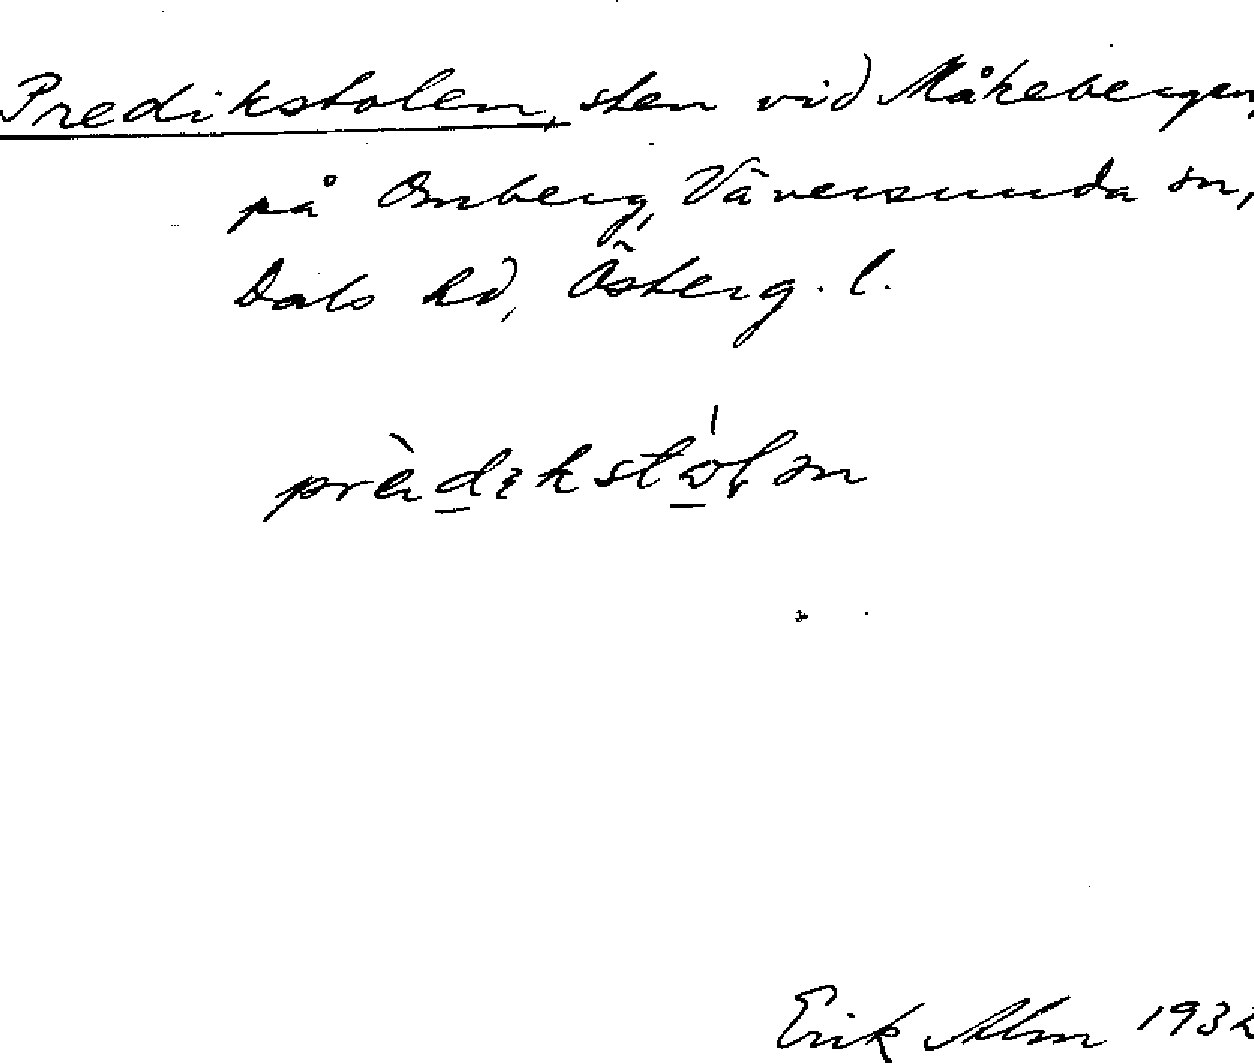 Predikstolen, sten vid Måkebergen,
på Omberg, Väversunda sn,
Dals hd, Österg. l.
prèdıkstólən
Erik Alm 1932